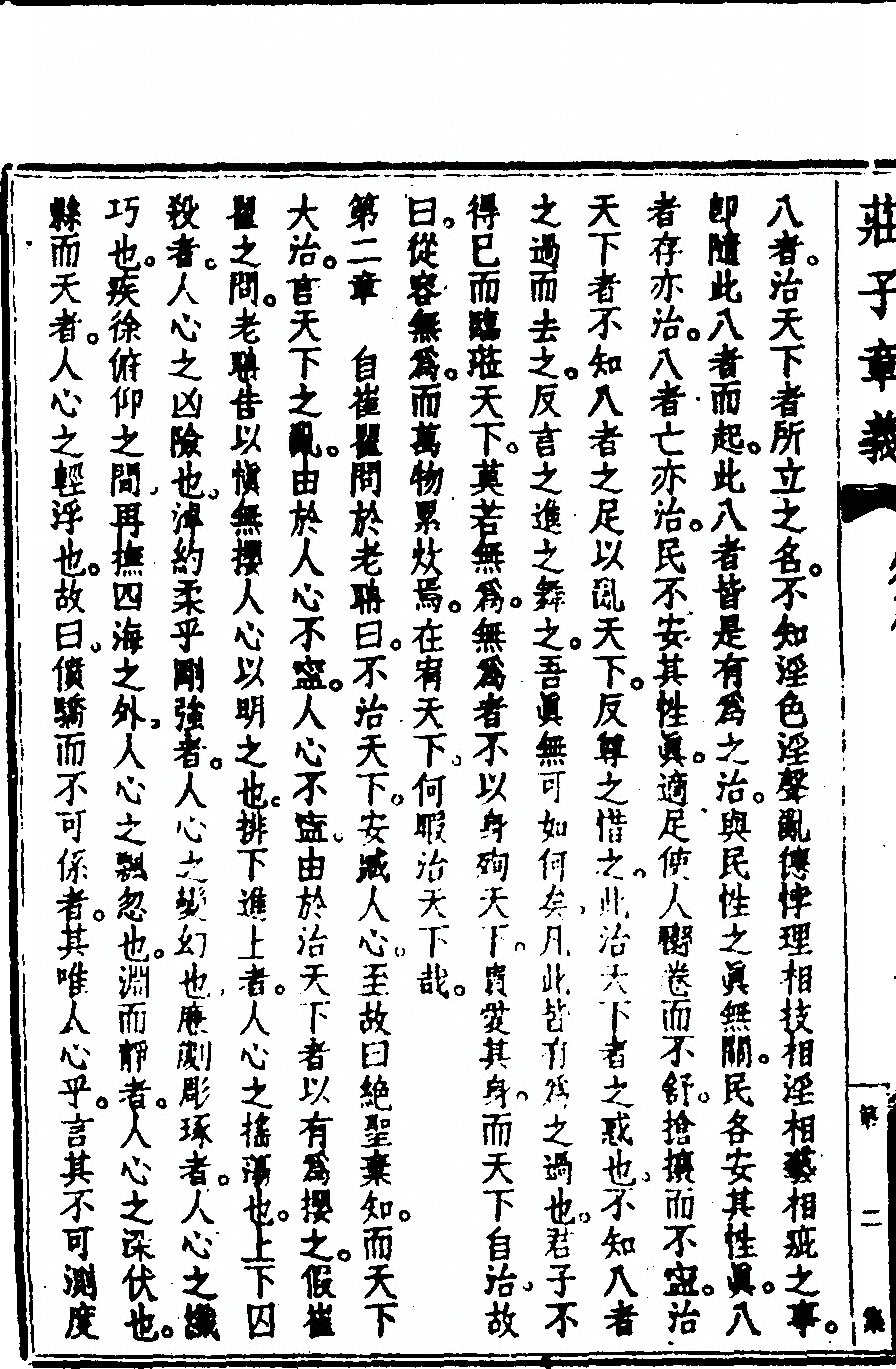 莊子章義
第二集
八者。治天下者所立之名。不知淫色淫聲亂德悖理相技相淫相藝相疵之事。
卽隨此八者而起。此八者皆是有爲之治。與民性之眞無關。民各安其性眞。八
者存亦治。八者亡亦治。民不安其性眞。適足使人臠卷而不舒。搶攘而不寍。治
天下者不知八者之足以亂天下。反尊之惜之。此治天下者之惑也。不知八者
之過而去之。反言之進之舞之。吾眞無可如何矣。凡此皆有爲之過也。君子不
得已而臨蒞天下。莫若無爲。無爲者不以身殉天下。貴愛其身。而天下自治。故
曰。從容無爲。而萬物累炊焉。在宥天下。何暇治天下哉。
第二章　自崔瞿問於老聃曰。不治天下。安臧人心。至故曰絕聖棄知。而天下
大治。言天下之亂。由於人心不寍。人心不寍。由於治天下者以有爲攖之。假崔
瞿之問。老聃告以愼無攖人心以明之也。排下進上者。人心之搖蕩也。上下囚
殺者。人心之凶險也。淖約柔乎剛強者。人心之變幻也。廉劌彫琢者。人心之纖
巧也。疾徐俯仰之間。再撫四海之外。人心之飄忽也。淵而靜者。人心之深伏也。
縣而天者。人心之輕浮也。故曰。僨驕而不可係者。其唯人心乎。言其不可測度